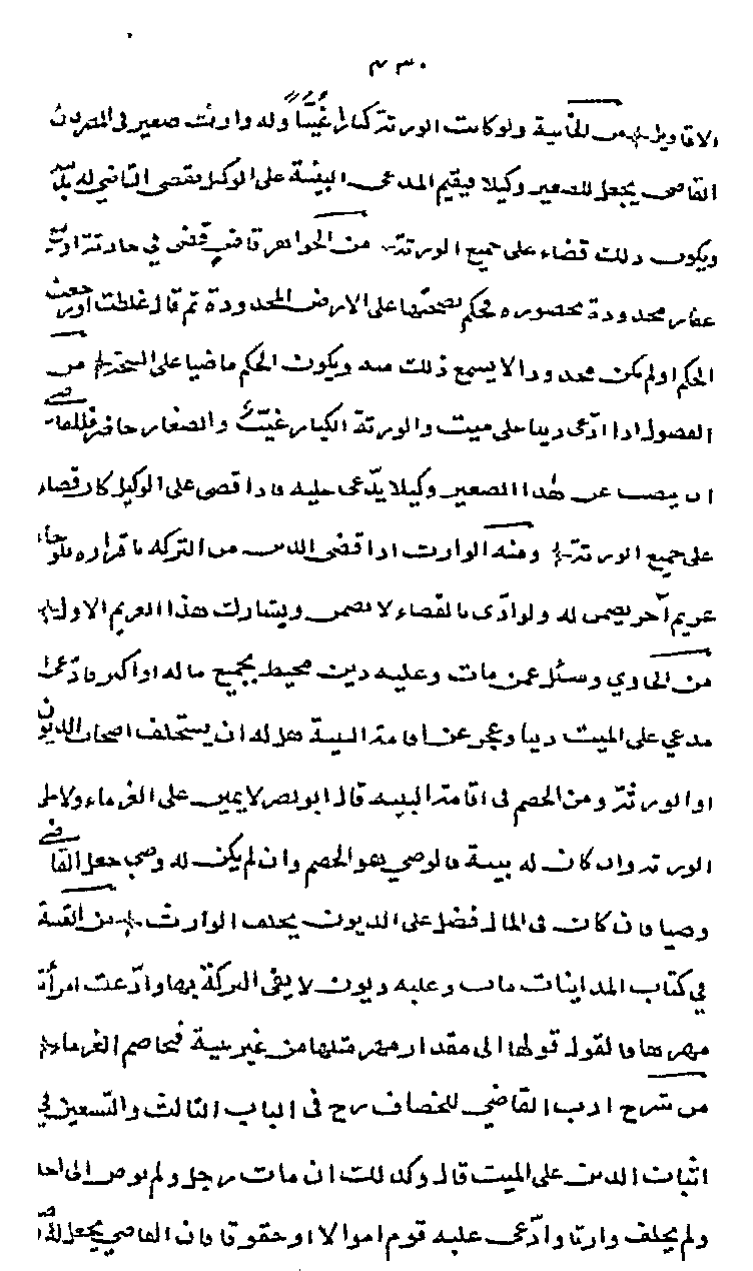 ٤٣٠
الاقاويل من الخانية ولو كانت الورثة كبارا غيبا وله وارث صغير في المصر فان
القاضي يجعل للصغير وكيلا فيقيم المدعى البينة على الوكيل فقضى القاضي له
ويكون ذلك قضاء على جميع الورثة من الجواهر قاض قضى في حادثة او
عقار محدودة محصوره فحكم بصحتها على الارض المحدودة ثم قال غلطت او رجعت
الحكم او لم يكن محدودا لا يسمع ذلك منه ويكون الحكم ماضيا على الصحة من
الفصول اذا ادعى دينا على ميت والورثة الكبار غيب والصغار حاضر فللقاضي
ان ينصب عن هذا الصغير وكيلا يدعى عليه فاذا قضى على الوكيل كان قضاء
على جميع الورثة ومنه الوارث اذا قضى الدين من التركه باقراره فلو جاء
غريم آخر يضمن له ولو ادى بالقضاء لا يضمن ويشارك هذا الغريم الاول
من الحاوي وسئل عمن مات وعليه دين محيط بجميع ماله او اكثر فادعى
مدعي على الميت دينا وعجز عن اقامة البينة هل له ان يستحلف اصحاب الديون
او الورثة ومن الخصم في اقامة البينه قال ابو نصر لا يمين على الغرماء ولا على
الورثه وان كان له بينة فالوصي هو الخصم وان لم يكن له وصي جعل القاضي
وصيا فان كان في المال فضل على الديون يحلف الوارث من القنية
في كتاب المداينات مات وعليه ديون لا يفى التركة بها وادعت امرأته
مهرها فالقول قولها الى مقدار مهر مثلها من غير بينة فيخاصم الغرماء
من شرح ادب القاضي للخصاف رح في الباب الثالث والتسعين في
اثبات الدين على الميت قال وكذلك ان مات رجل ولم يوص الى احد
ولم يخلف وارثا وادعى عليه قوم اموالا او حقوقا فان القاضي يجعل له